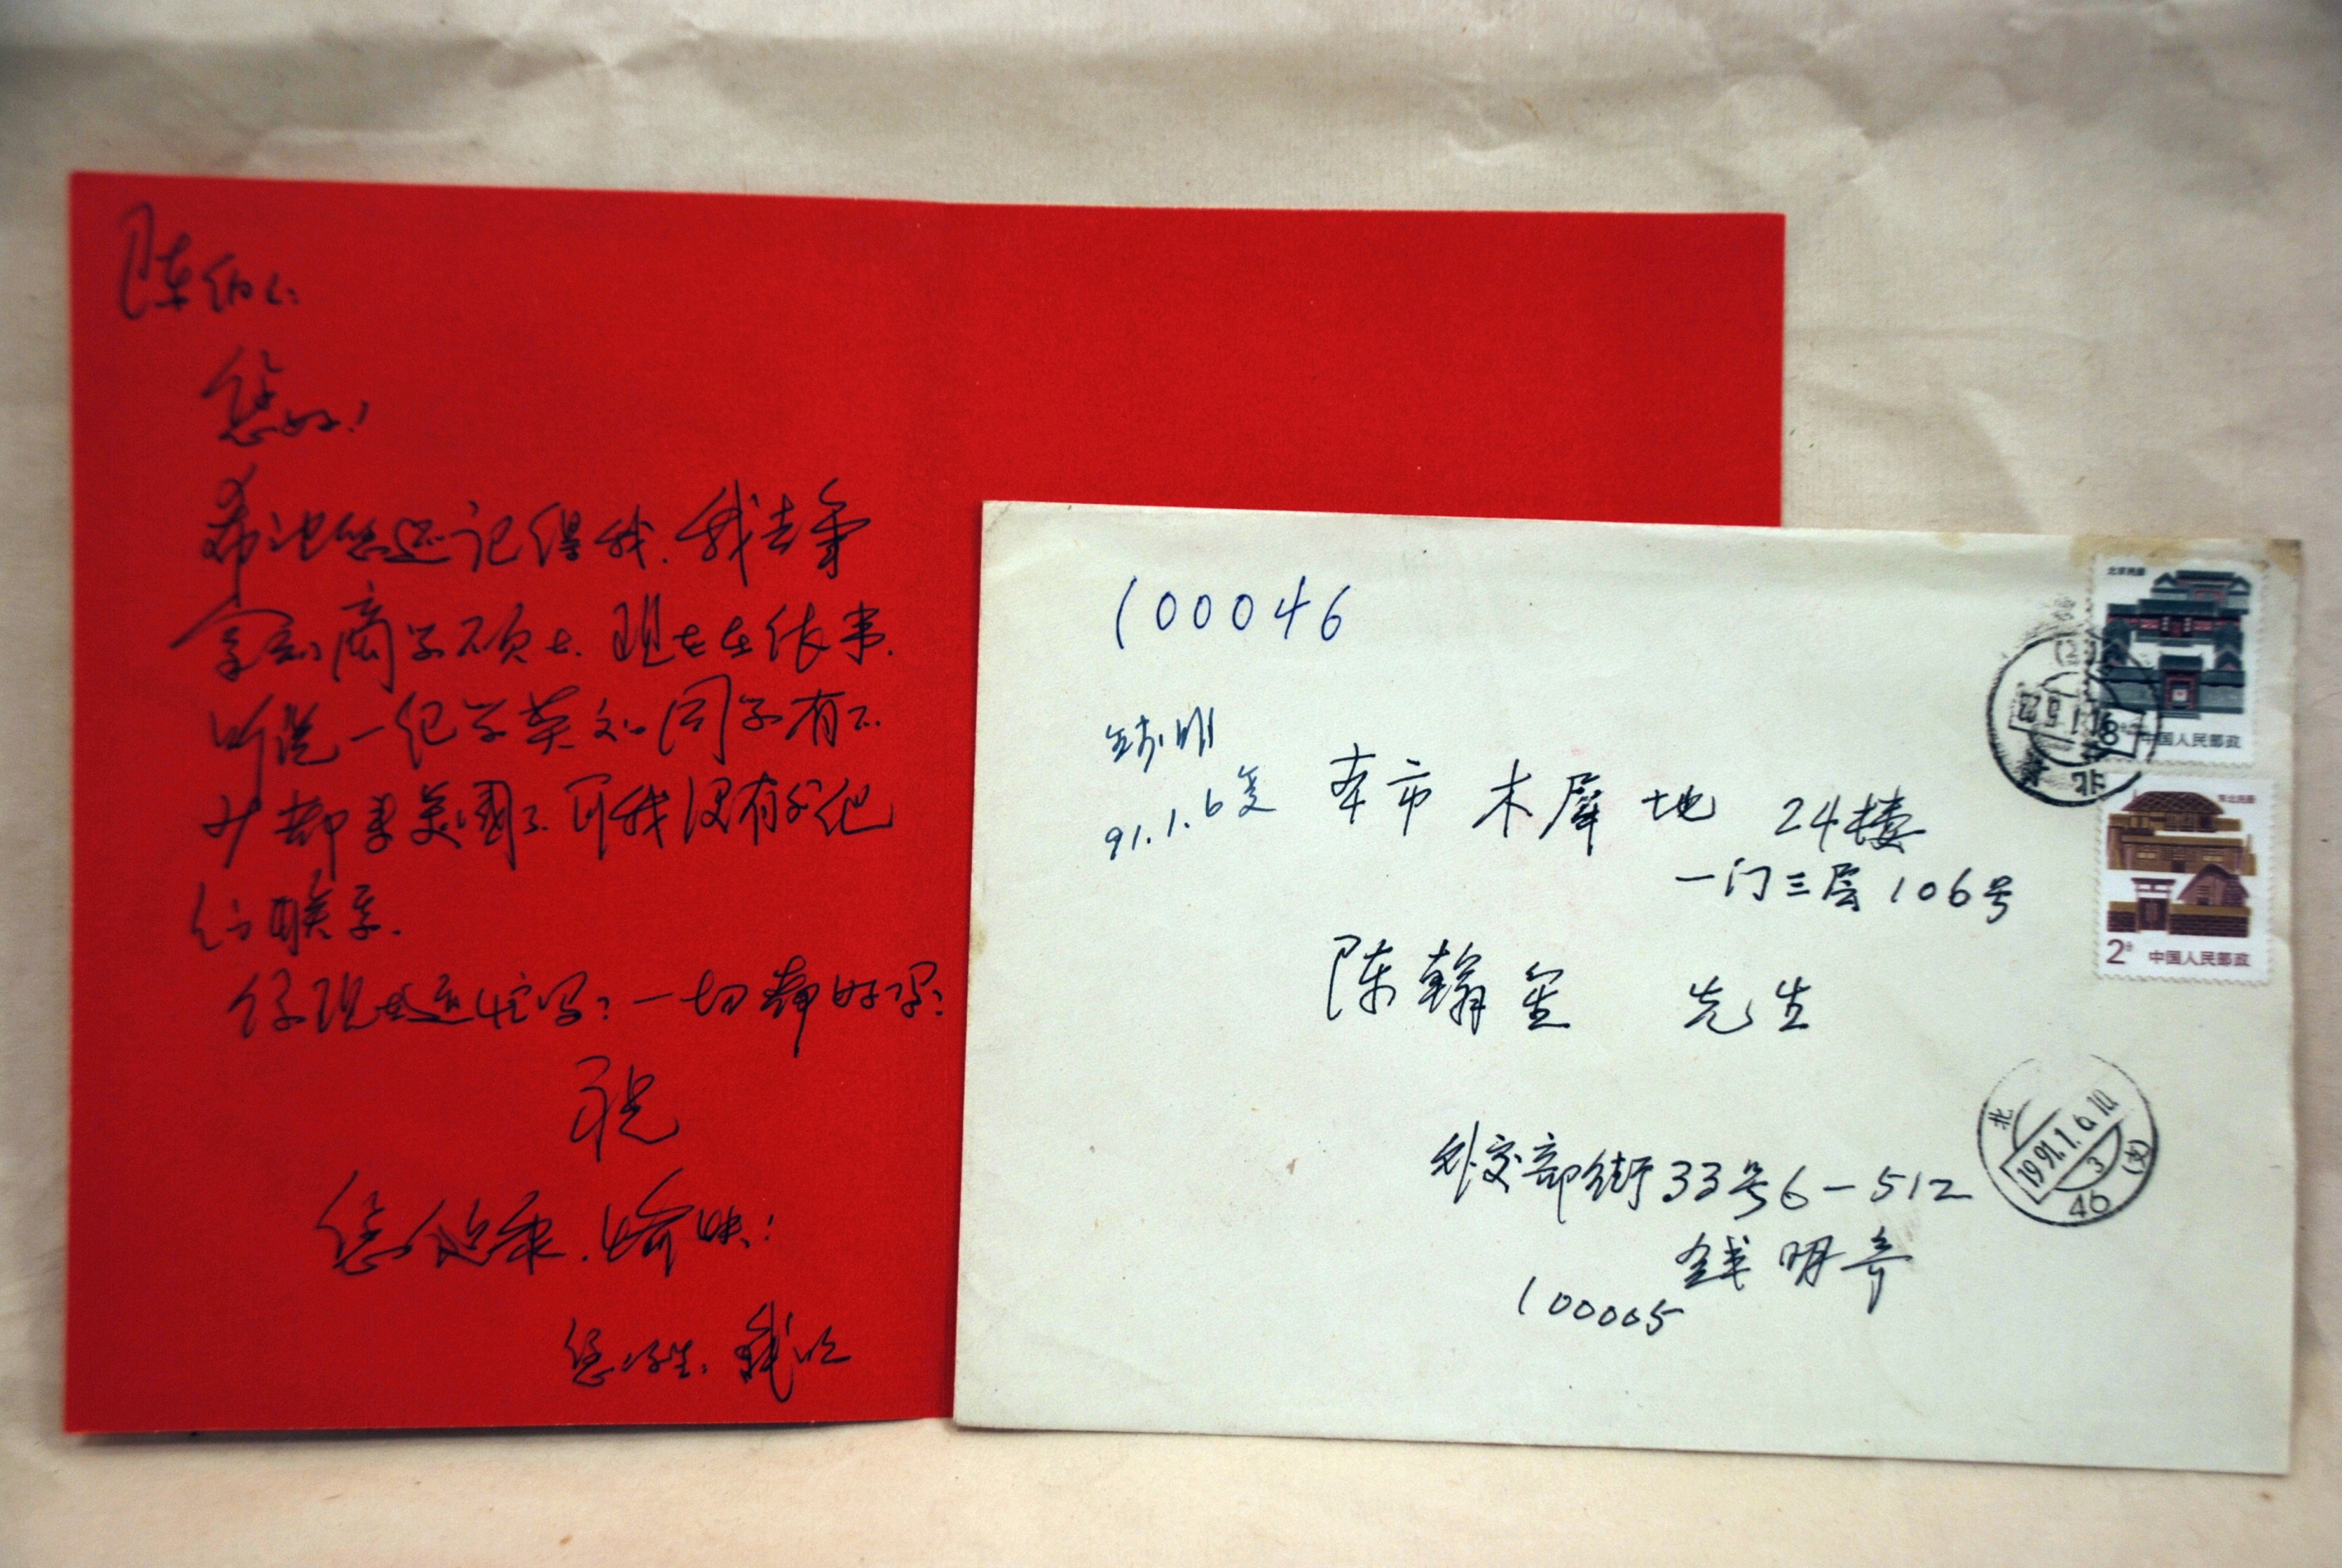 陈伯伯:
您好!
希望您还记得我.我去年
拿到商学硕士.现在在做事.
听说一起学英文的同学有不
少都来美国了.可我没有和他
们联系.
您现在还忙吗?一切都好吗?
祝
您健康.愉快!
您的学生:
100046
91.1.6复
本市 木犀地 24楼
一门三层106号
陈翰笙 先生
外交部街33号6-512
钱明奇
100005
北京民居
8分 中国人民邮政
东北民居
2分 中国人民邮政
北
1991.1.6.10
3
(支)
46